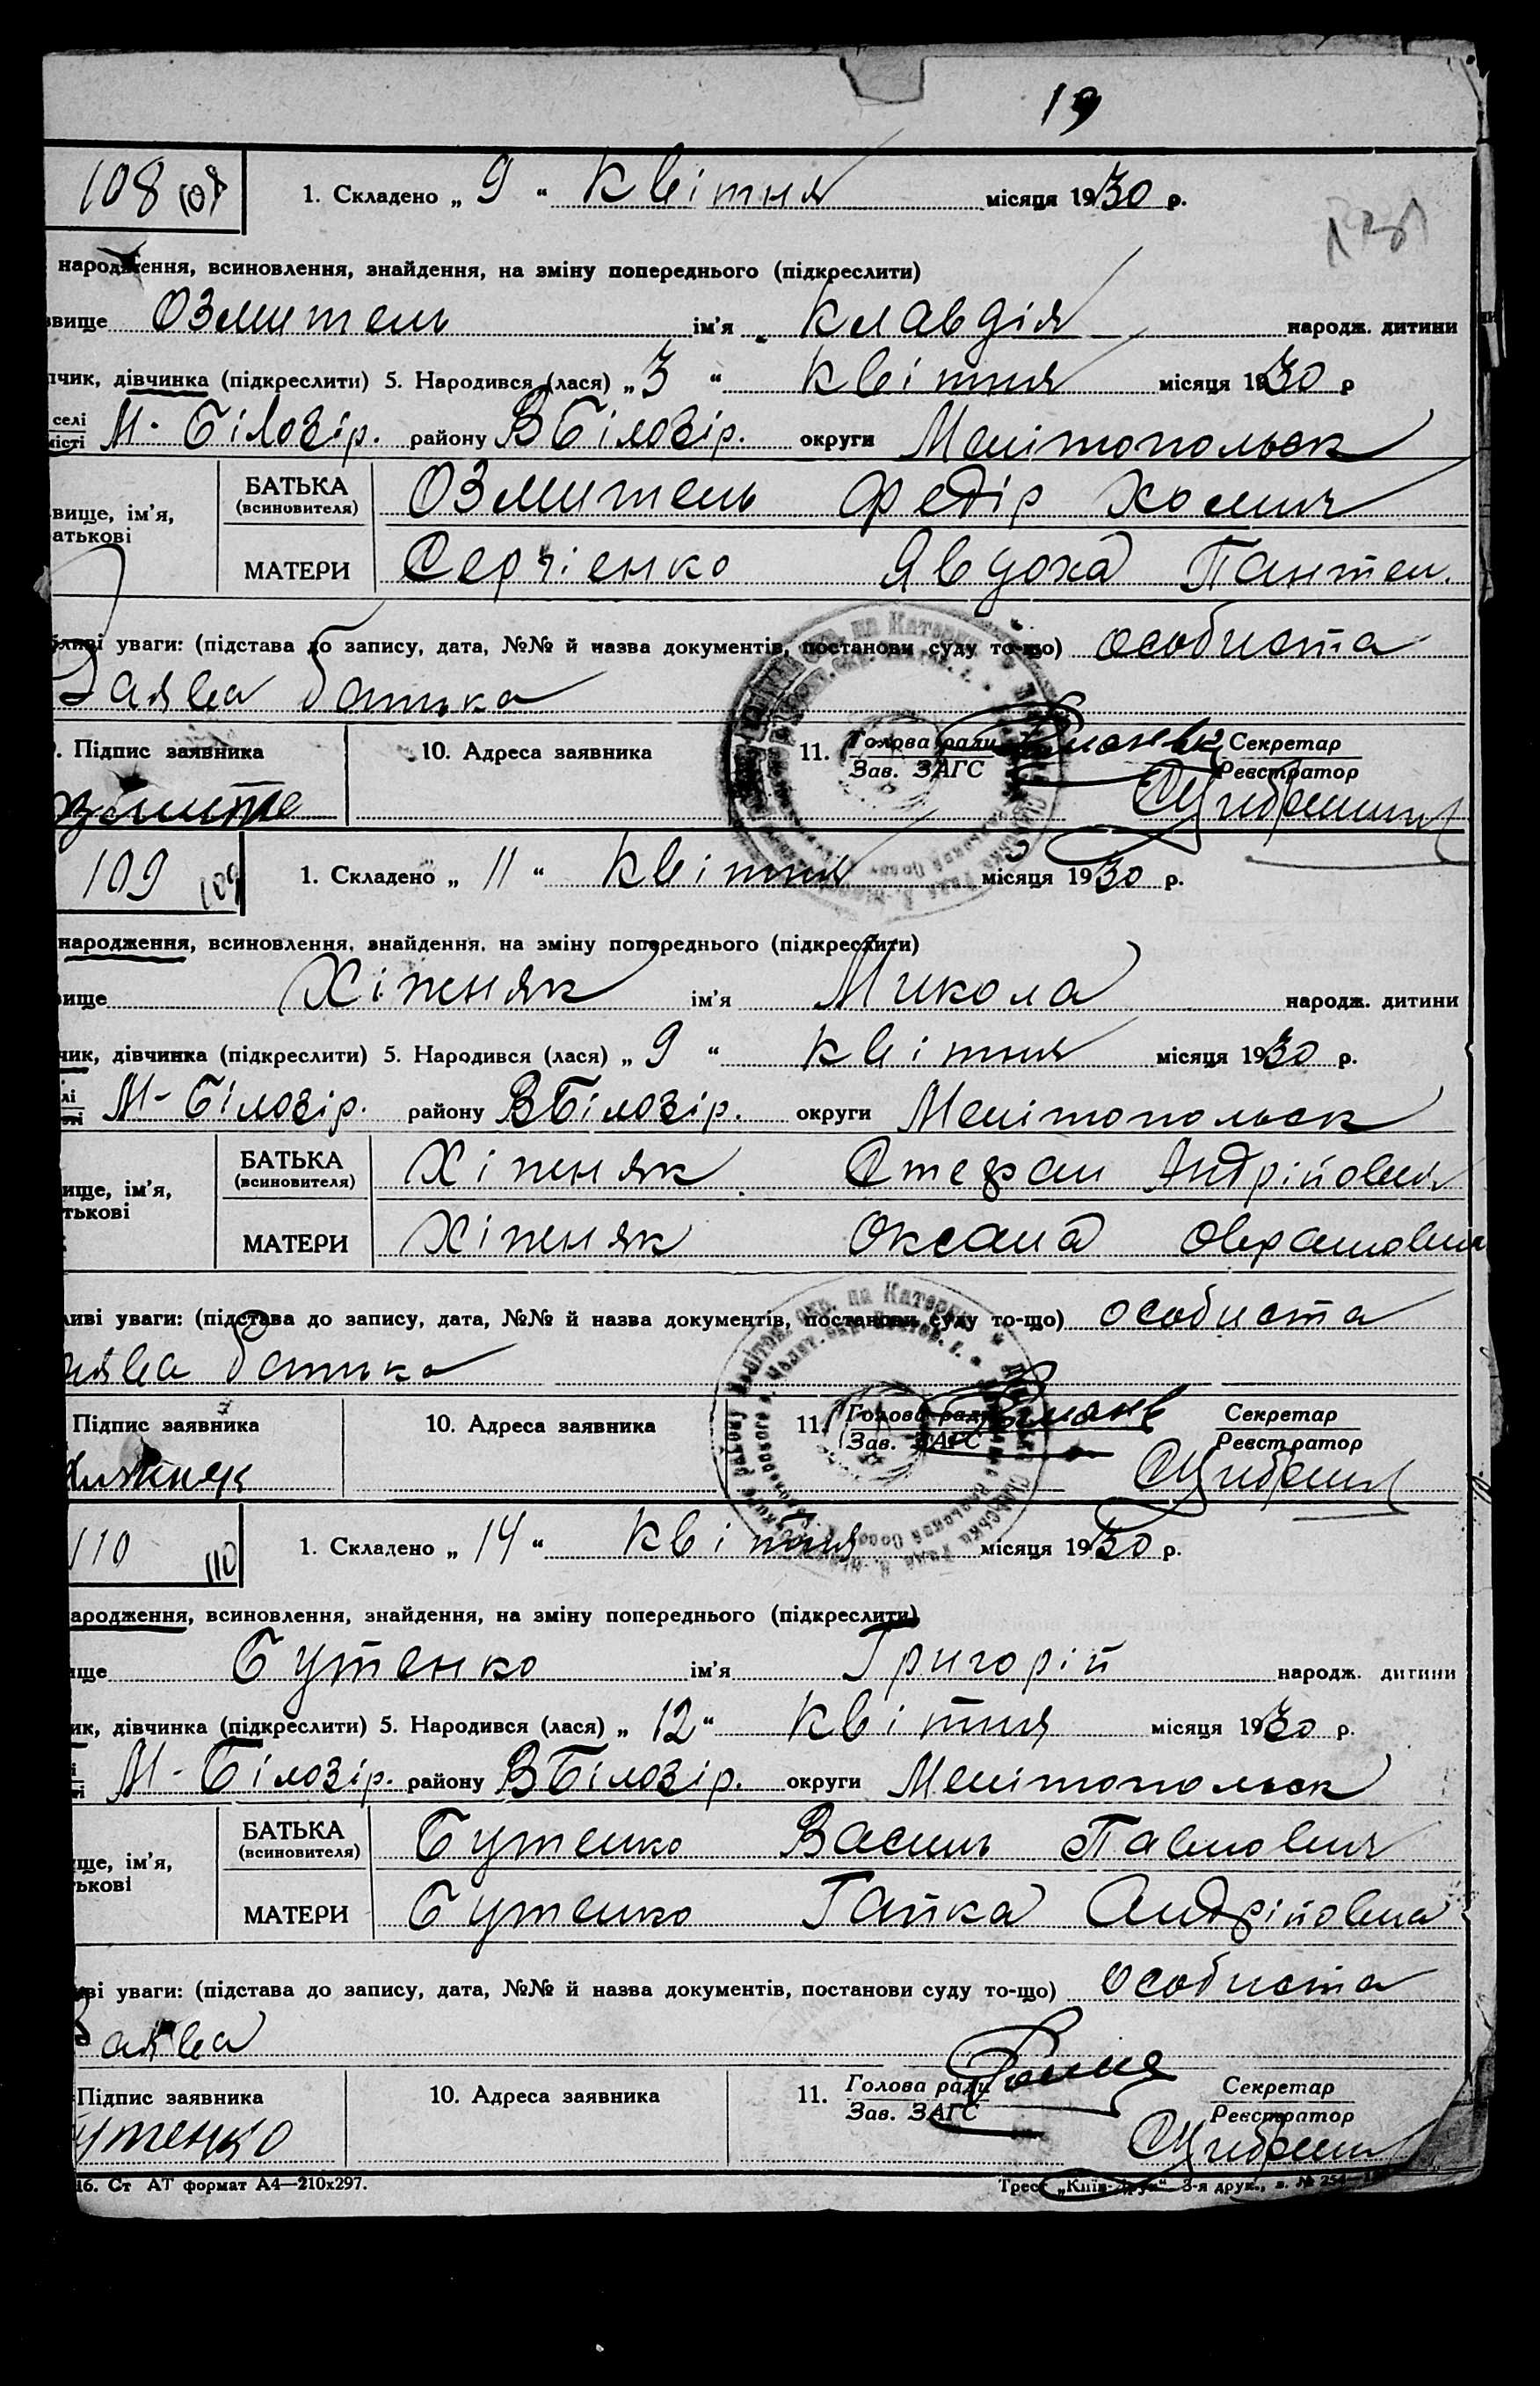 19
108 108 1. Складено „ 9 “ Квітня місяця 1930 р.
народження, всиновлення, знайдення, на зміну попереднього (підкреслити)
Озмитель ім'я Клавдія народж. дитини
дівчинка (підкреслити) 5. Народився (лася) „ 3 “ Квітня місяця 1930 р
селі М. Білозір. району В Білозір. округи Мелітопольськ
БАТЬКА (всиновителя) Озмитель Федір Хомич
вище, ім'я,
МАТЕРИ Сергієнко Явдоха Пантел.
уваги: (підстава до запису, дата, №№ й назва документів, постанови суду то-що) особиста
Заява батька
Підпис заявника 10. Адреса заявника 11. Голова ради Зав. ЗАГС Секретар Реєстратор
109 109 1. Складено „ 11 “ Квітня місяця 1930 р.
народження, всиновлення, знайдення, на зміну попереднього (підкреслити)
Хіпеняк ім'я Микола народж. дитини
чик, дівчинка (підкреслити) 5. Народився (лася) „ 9 “ Квітня місяця 1930 р.
М-Білозір. району В Білозір. округи Мелітопольськ
БАТЬКА (всиновителя) Хіпеняк Стефан Андрійович
ім'я,
МАТЕРИ Хіпеняк Оксана
уваги: (підстава до запису, дата, №№ й назва документів, постанови суду то-що) особиста
батька
Підпис заявника 10. Адреса заявника 11. Голова ради Зав. ЗАГС Секретар Реєстратор
110 110 1. Складено „ 14 “ Квітня місяця 1930 р.
ародження, всиновлення, знайдення, на зміну попереднього (підкреслити)
Бутенко ім'я Григорій народж. дитини
ик, дівчинка (підкреслити) 5. Народився (лася) „ 12 “ Квітня місяця 1930 р.
М-Білозір. району В Білозір. округи Мелітопольськ
БАТЬКА (всиновителя) Бутенко Василь Павлович
ім'я,
МАТЕРИ Бутенко Гапка Андрійовна
уваги: (підстава до запису, дата, №№ й назва документів, постанови суду то-що) особиста
Заява
Підпис заявника 10. Адреса заявника 11. Голова ради Зав. ЗАГС Секретар Реєстратор
утенко
16. Ст АТ формат А4—210х297. Трест „Київ-Друк“ 3-я друк., з. № 254